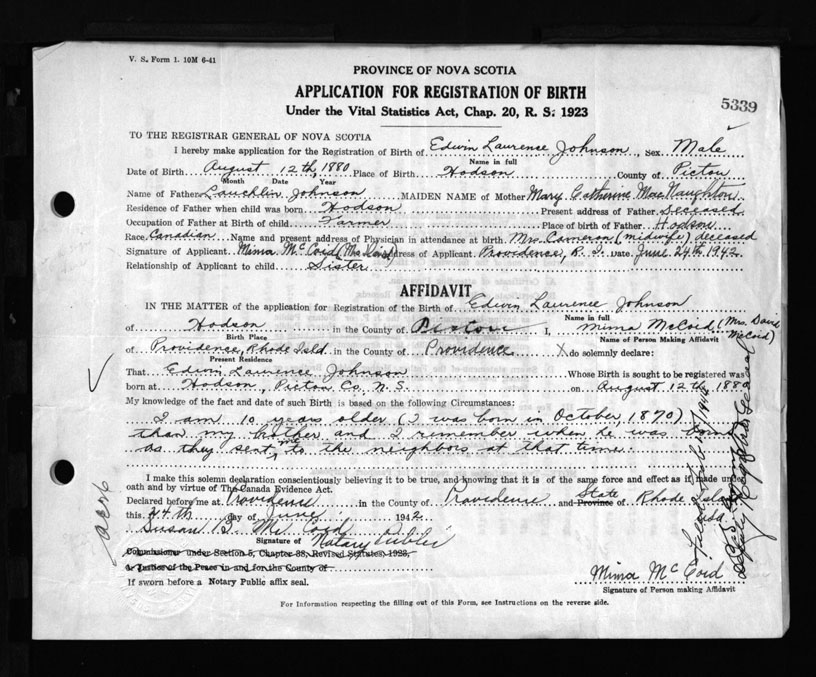 V. S. Form 1. 10M 6-41
PROVINCE OF NOVA SCOTIA
APPLICATION FOR REGISTRATION OF BIRTH
Under the Vital Statistics Act, Chap. 20, R. S. 1923
5339
TO THE REGISTRAR GENERAL OF NOVA SCOTIA
I hereby make application for the Registration of Birth of Edwin Laurence Johnson, Sex Male
Name in full
Date of Birth August 12th, 1880 Place of Birth Hodson County of Pictou
Month Date Year
Name of Father Lauchlin Johnson MAIDEN NAME of Mother Mary Catherine MacNaughton
Residence of Father when child was born Hodson Present address of Father Deceased
Occupation of Father at Birth of child Farmer Place of birth of Father Hodson
Race Canadian Name and present address of Physician in attendance at birth Mrs Cameron (midwife) deceased
Signature of Applicant Mima McCoid (Mrs David) Address of Applicant Providence, R. I. Date June 24th, 1942
Relationship of Applicant to child Sister
AFFIDAVIT
IN THE MATTER of the application for Registration of the Birth of Edwin Laurence Johnson
Name in full
of Hodson in the County of Pictou I, Mima McCoid (Mrs David McCoid)
Birth Place Name of Person Making Affidavit
of Providence, Rhode Isld. in the County of Providence X do solemnly declare:
Present Residence
That Edwin Laurence Johnson Whose Birth is sought to be registered was
born at Hodson, Pictou Co, N. S. on August 12th 1880
My knowledge of the fact and date of such Birth is based on the following Circumstances:
I am 10 years older (I was born in October, 1870)
than my brother and I remember when he was born
as they sent me to the neighbors at that time.
I make this solemn declaration conscientiously believing it to be true, and knowing that it is of the same force and effect as if made under
oath and by virtue of The Canada Evidence Act.
Declared before me at Providence in the County of Providence and State Province of Rhode Island
this 24th day of June 1942
Susan G. McCoid
Signature of Notary Public
Commissioner under Section 5, Chapter 38, Revised Statutes, 1923,
a Justice of the Peace in and for the County of
If sworn before a Notary Public affix seal.
Mima McCoid
Signature of Person making Affidavit
For Information respecting the filling out of this Form, see Instructions on the reverse side.
Deputy Registrar General